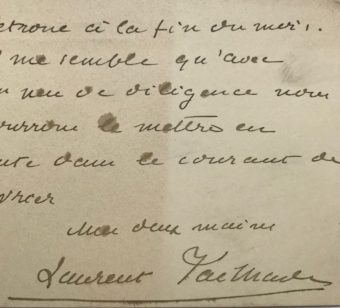 etrouve à la fin du mois.
me semble qu'avec
peu de diligence nous
ourrons le mettre en
ente dans le courant de
vrier
Mes deux mains
Laurent Tailhade